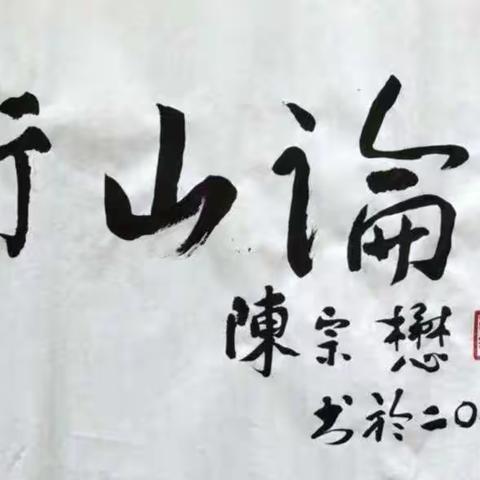 山論
陳宗懋
书於二〇